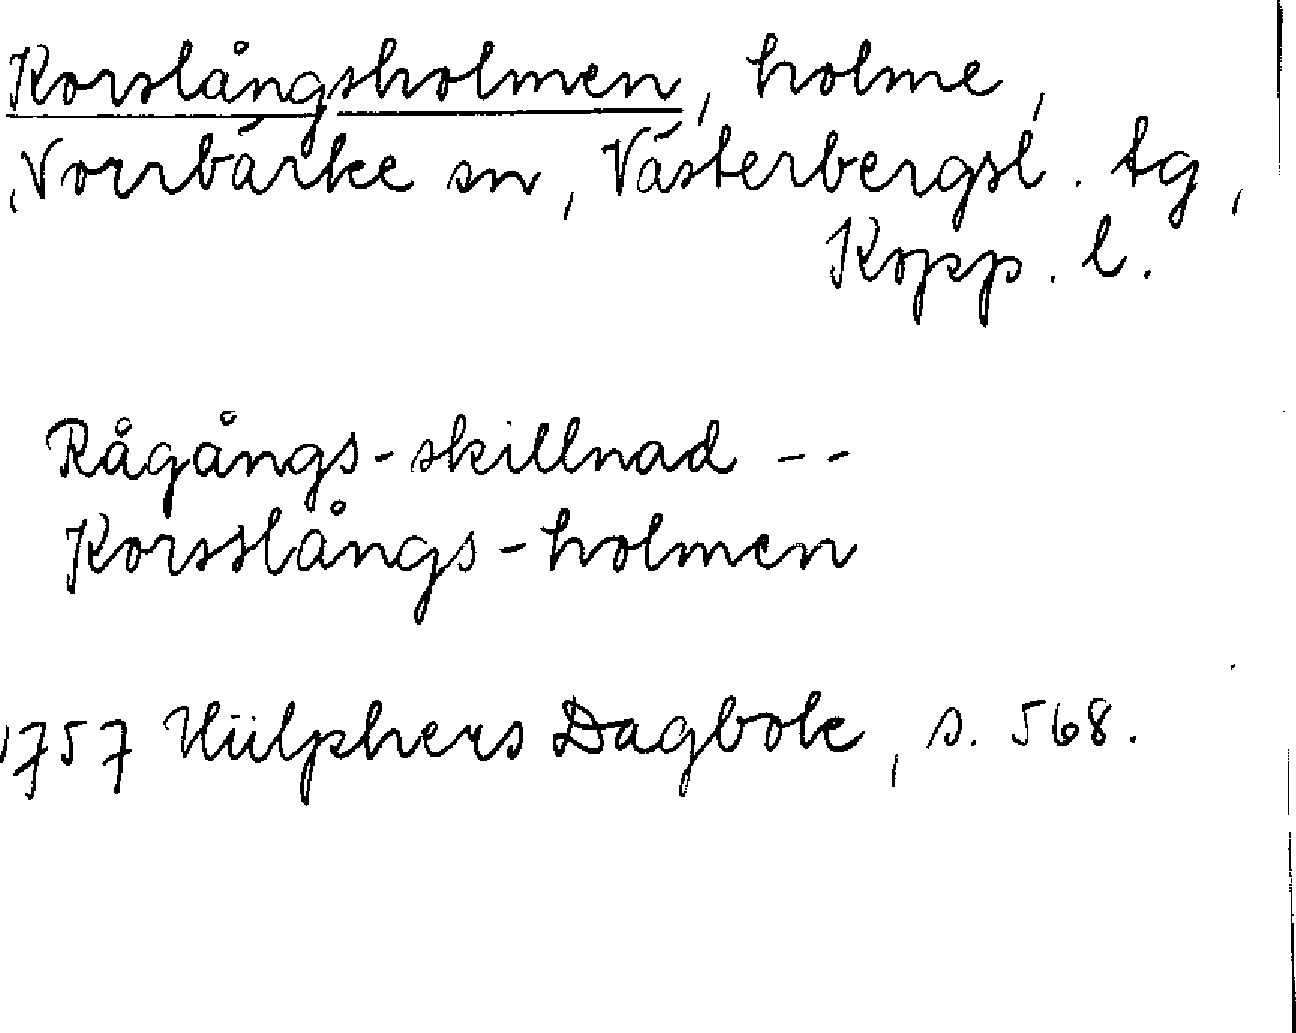 Korslångsholmen, holme,
Norrbärke sn, Västerbergsl. tg,
Kopp. l.
Rågångs-skillnad --
Korsslångs-holmen
1757 Hülphers Dagbok, s. 568.